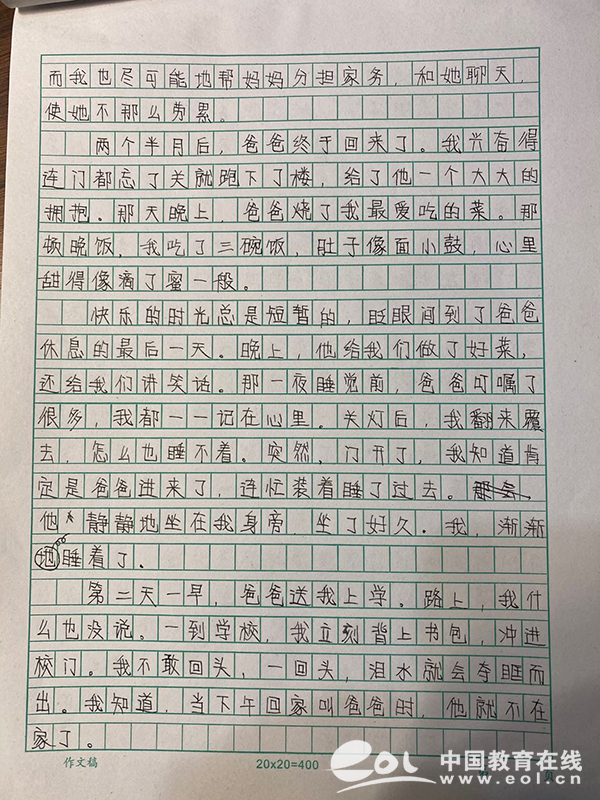 而我也尽可能地帮妈妈分担家务，和她聊天，
使她不那么劳累。
两个半月后，爸爸终于回来了。我兴奋得
连门都忘了关就跑下了楼，给了他一个大大的
拥抱。那天晚上，爸爸烧了我最爱吃的菜。那
顿晚饭，我吃了三碗饭，肚子像面小鼓，心里
甜得像滴了蜜一般。
快乐的时光总是短暂的，眨眼间到了爸爸
休息的最后一天。晚上，他给我们做了好菜，
还给我们讲笑话。那一夜睡觉前，爸爸叮嘱了
很多，我都一一记在心里。关灯后，我翻来覆
去，怎么也睡不着。突然，门开了，我知道肯
定是爸爸进来了，连忙装着睡了过去。
他静静地坐在我身旁 坐了好久。我，渐渐
地睡着了。
第二天一早，爸爸送我上学。路上，我什
么也没说。一到学校，我立刻背上书包，冲进
校门。我不敢回头，一回头，泪水就会夺眶而
出。我知道，当下午回家叫爸爸时，他就不在
家了。
作文稿 20x20=400 页
eol 中国教育在线
www.eol.cn